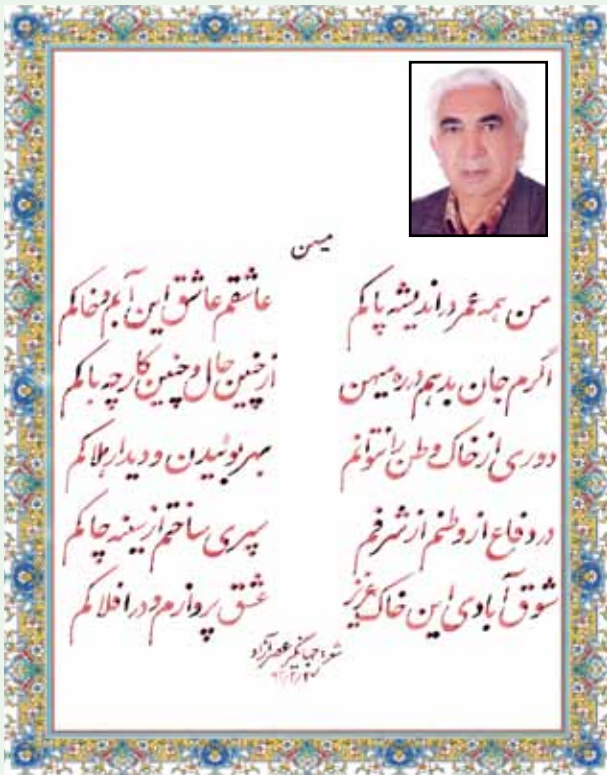 میهن
من همه عمر در اندیشه پاکم عاشقم عاشق این آب و خاکم
اگرم جان بدهم در ره میهن از چنین حال و چنین کار چه باکم
دوری از خاک وطن را نتوانم بهر بوئیدن و دیدار هلاکم
در دفاع از وطنم از شرفم سپری ساختم از سینه چاکم
شوق آبادی این خاک عزیز عشق پروازم و در افلاکم
شعر: جهانگیر